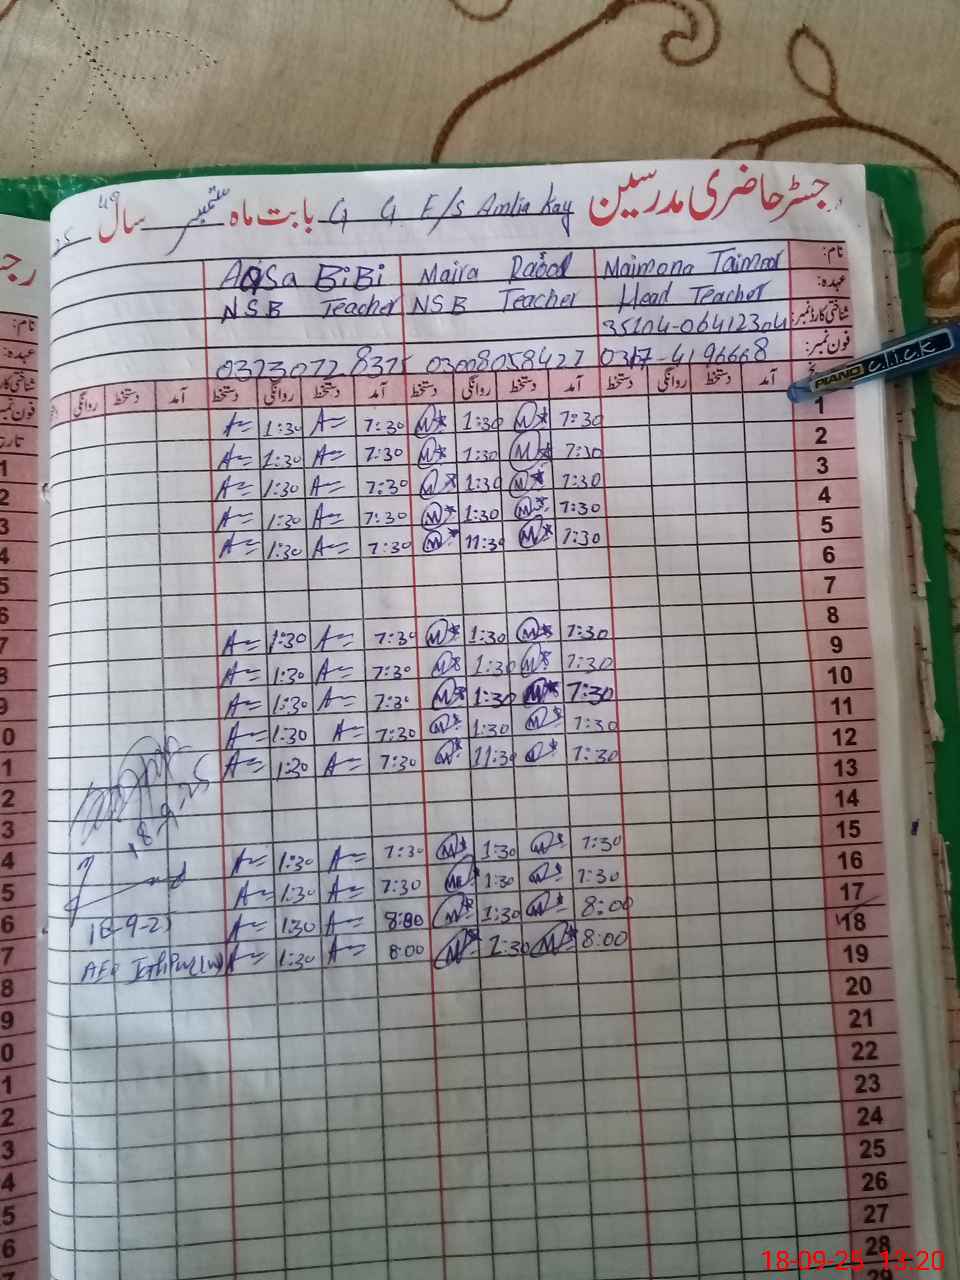 جسٹر حاضری مدرسین G G E/S Amlia Kay بابت ماہ ستمبر سال 25
نام: Maimona Taimoor Maira Rasool AQSa BiBi
عہدہ: Head Teacher NSB Teacher NSB Teacher
شناختی کارڈ نمبر: 35104-06412304
فون نمبر: 0317-4196668 03008058427 03730728375
آمد دستخط روانگی دستخط آمد دستخط روانگی دستخط آمد دستخط روانگی دستخط آمد دستخط روانگی
PIANO click
1 7:30 M 1:30 M 7:30 A 1:30 A
2 7:30 M 1:30 M 7:30 A 1:30 A
3 7:30 M 1:30 M 7:30 A 1:30 A
4 7:30 M 1:30 M 7:30 A 1:30 A
5 7:30 M 11:30 M 7:30 A 1:30 A
6
7
8 7:30 M 1:30 M 7:30 A 1:30 A
9 7:30 M 1:30 M 7:30 A 1:30 A
10 7:30 M 1:30 M 7:30 A 1:30 A
11 7:30 M 1:30 M 7:30 A 1:30 A
12 7:30 M 11:30 M 7:30 A 1:30 A
13
14
15 7:30 M 1:30 M 7:30 A 1:30 A
16 7:30 M 1:30 M 7:30 A 1:30 A
17 8:00 M 1:30 M 8:00 A 1:30 A
18 8:00 M 1:30 M 8:00 A 1:30 A
18-9-25
AEO
19
20
21
22
23
24
25
26
27
28
18-09-25 13:20